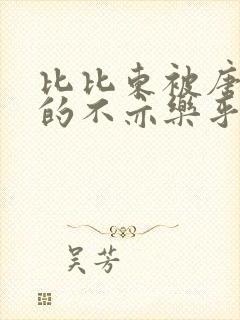 比比东被唐
的不亦乐乎
吴芳